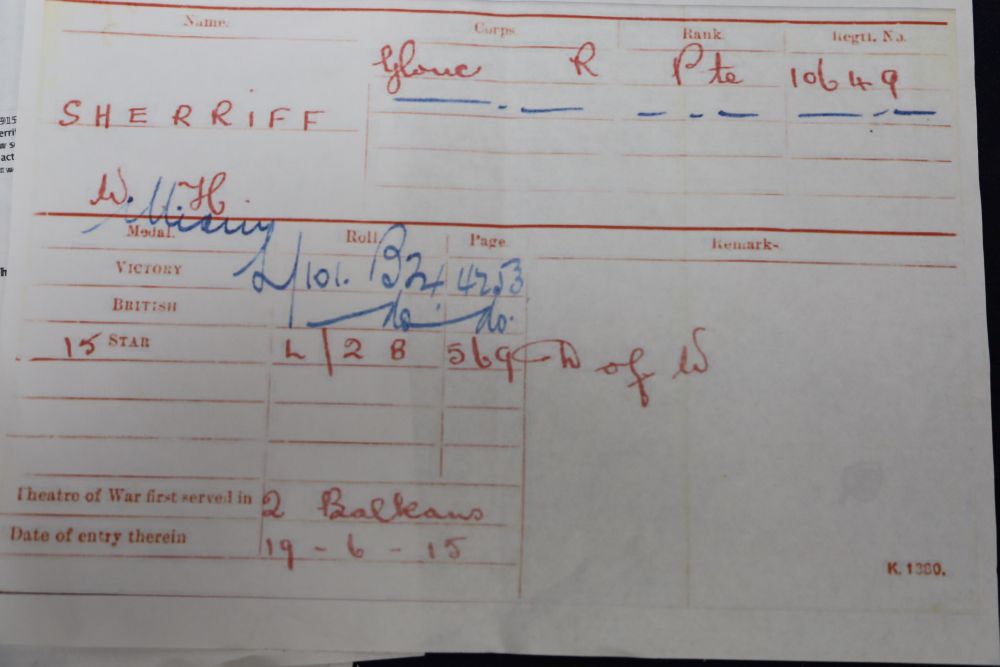 Name. Corps. Rank. Regtl. No.
Glouc R Pte 10649
SHERRIFF
W. H.
Medal. Roll. Page. Remarks.
VICTORY L/101. B24 4253
BRITISH do. do.
15 STAR L/2B 569 D of W
Theatre of War first served in 2 Balkans
Date of entry therein 19-6-15
K. 1380.